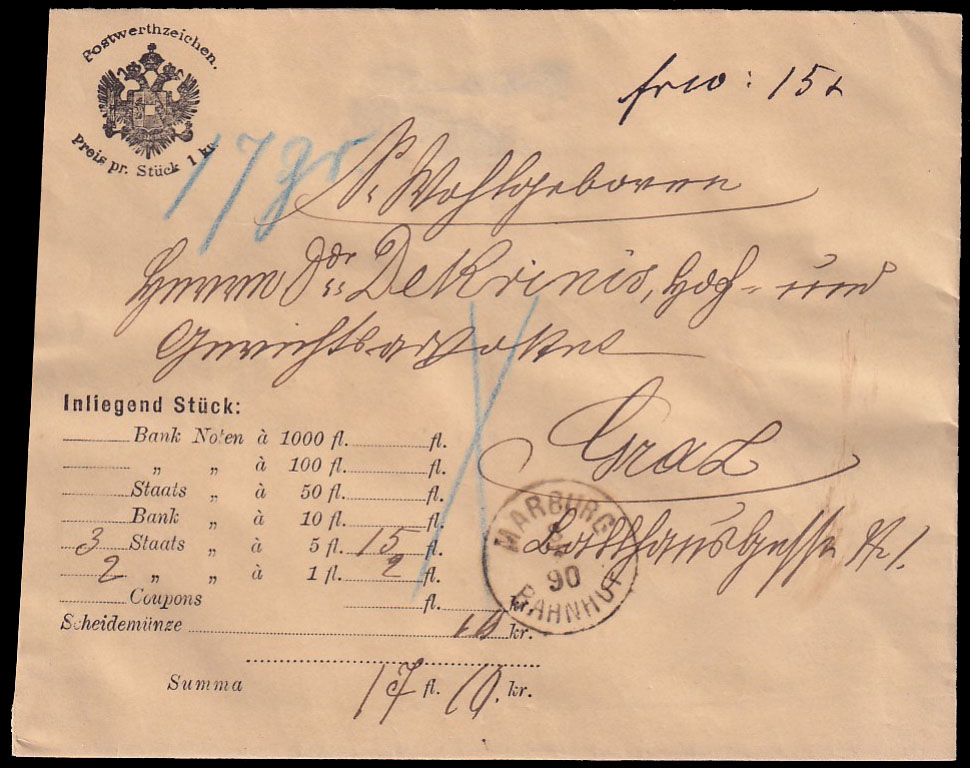 Postwerthzeichen.
Preis pr. Stück 1 kr.
frco: 15x
17 gr.
Sr Wohlgeboren
Herrn Ddr DeKrinis, Hof- und
Gerichtsadvokat
Graz
MARBURG
90
BAHNHOF
Inliegend Stück:
Bank Noten à 1000 fl. fl.
„ „ à 100 fl. fl.
Staats „ à 50 fl. fl.
Bank „ à 10 fl. fl.
3 Staats „ à 5 fl. 15 fl.
2 „ „ à 1 fl. 2 fl.
Coupons fl. kr.
Scheidemünze 10 kr.
Summa 17 fl. 10. kr.